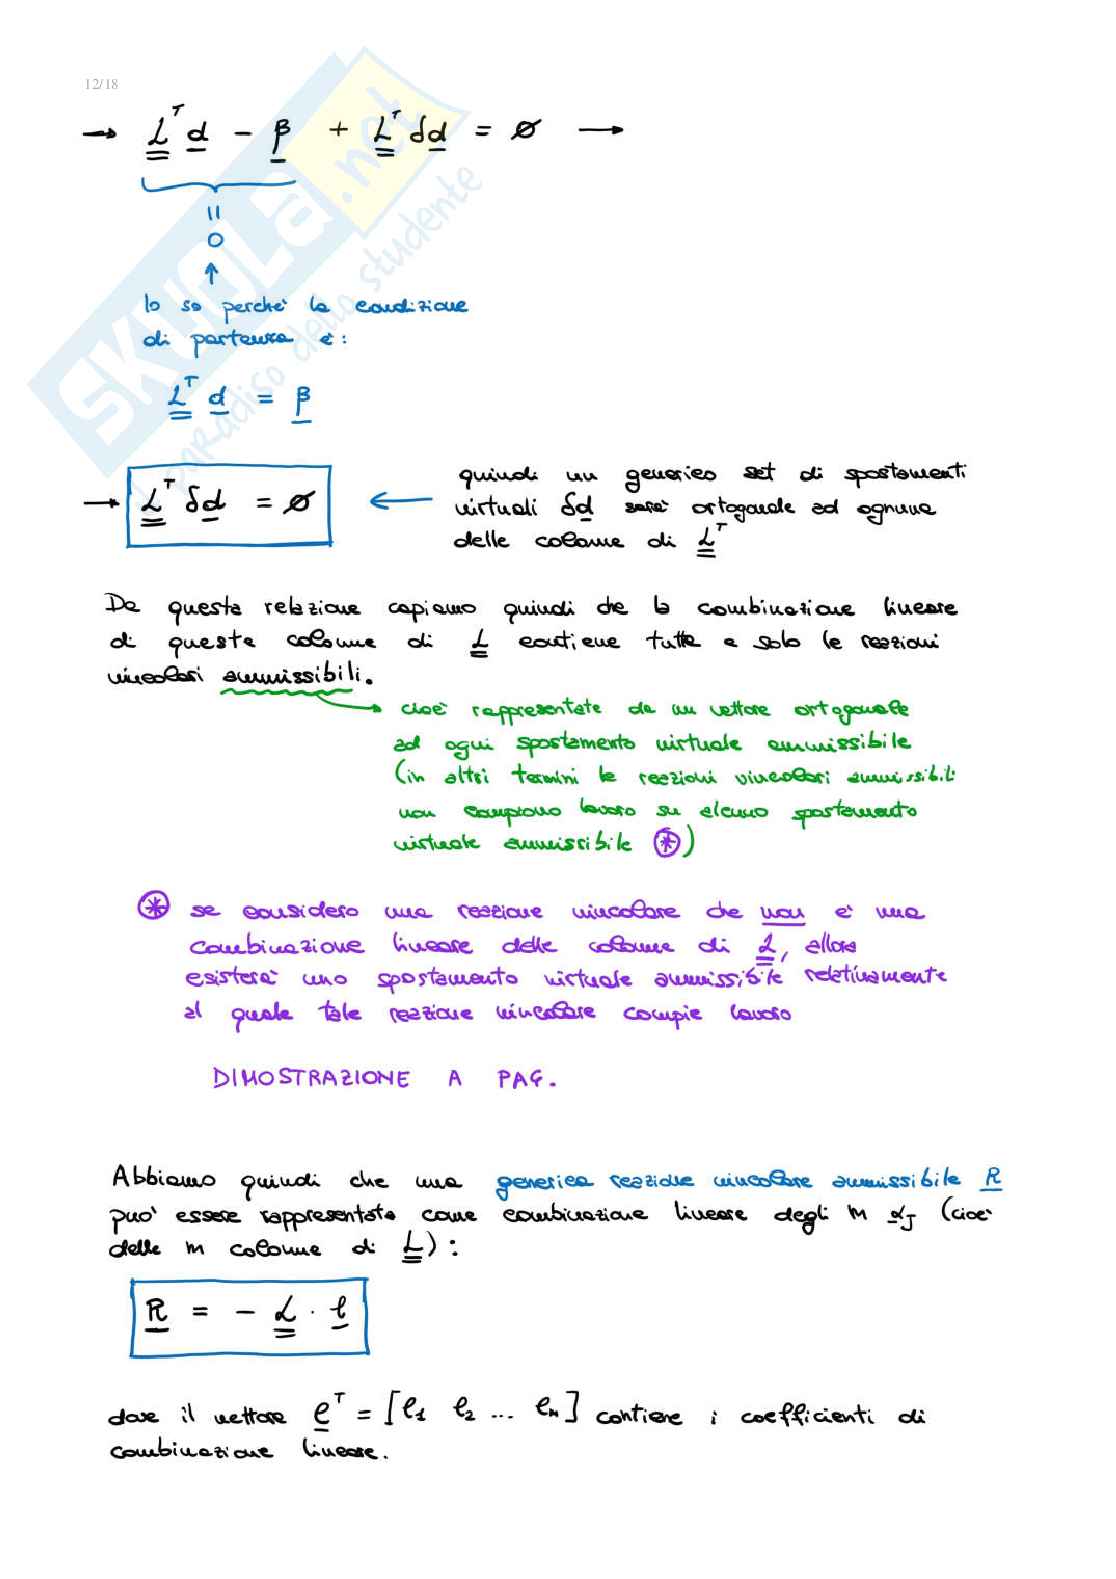 12/18
→ L^T d − β + L^T δd = ∅ →
SKUOLA.net
il paradiso dello studente
||
0
↑
lo so perchè la condizione
di partenza è:
L^T d = β
→ L^T δd = ∅ ←
quindi un generico set di spostamenti
virtuali δd sarà ortogonale ad ognuna
delle colonne di L^T
Da questa relazione capiamo quindi che la combinazione lineare
di queste colonne di L contiene tutte e solo le reazioni
vincolari ammissibili.
cioè rappresentate da un vettore ortogonale
ad ogni spostamento virtuale ammissibile
(in altri termini le reazioni vincolari ammissibili
non compiono lavoro su alcuno spostamento
virtuale ammissibile ⊛)
⊛ se considero una reazione vincolare che non è una
combinazione lineare delle colonne di L, allora
esisterà uno spostamento virtuale ammissibile relativamente
al quale tale reazione vincolare compie lavoro
DIMOSTRAZIONE A PAG.
Abbiamo quindi che una generica reazione vincolare ammissibile R
può essere rappresentata come combinazione lineare degli m α_J (cioè
delle m colonne di L):
R = − L · ℓ
dove il vettore ℓ^T = [ℓ1 ℓ2 ... ℓm] contiene i coefficienti di
combinazione lineare.